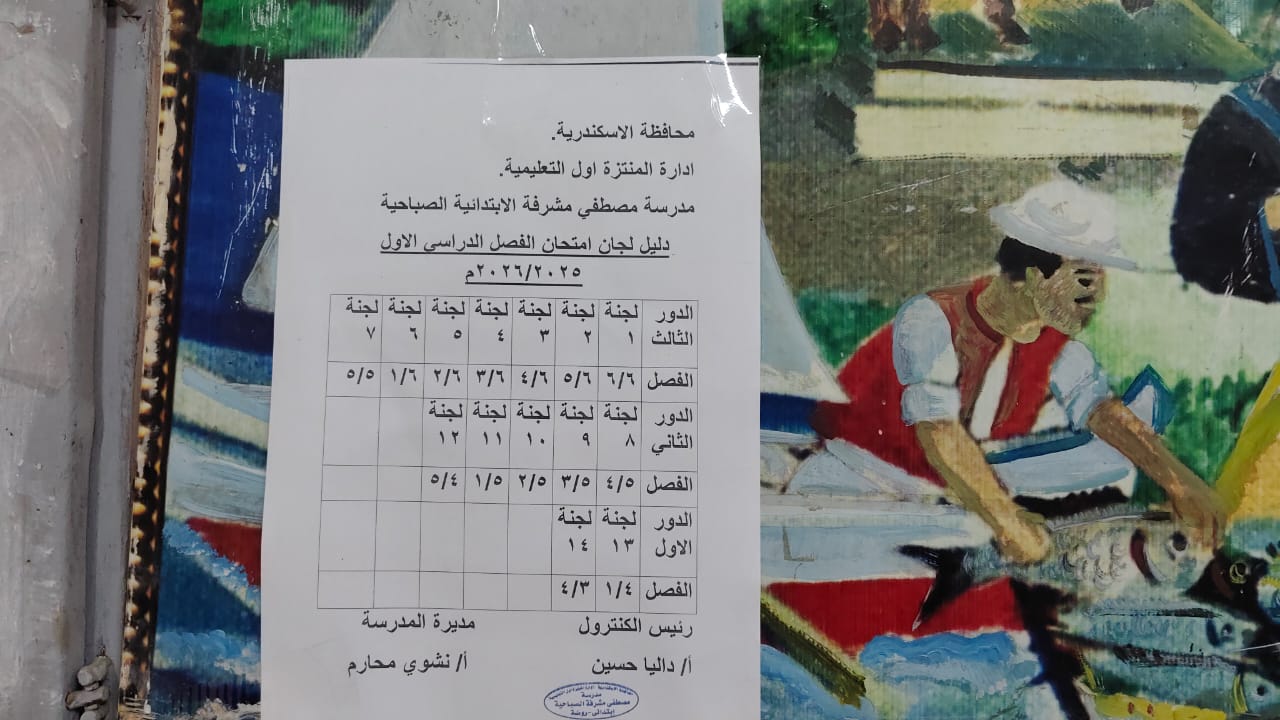 محافظة الاسكندرية.
ادارة المنتزة اول التعليمية.
مدرسة مصطفي مشرفة الابتدائية الصباحية
دليل لجان امتحان الفصل الدراسي الاول
٢٠٢٦/٢٠٢٥م
الدور الثالث لجنة ١ لجنة ٢ لجنة ٣ لجنة ٤ لجنة ٥ لجنة ٦ لجنة ٧
الفصل ٦/٦ ٥/٦ ٤/٦ ٣/٦ ٢/٦ ١/٦ ٥/٥
الدور الثاني لجنة ٨ لجنة ٩ لجنة ١٠ لجنة ١١ لجنة ١٢
الفصل ٤/٥ ٣/٥ ٢/٥ ١/٥ ٥/٤
الدور الاول لجنة ١٣ لجنة ١٤
الفصل ١/٤ ٤/٣
رئيس الكنترول مديرة المدرسة
أ/ داليا حسين أ/ نشوي محارم
مدرسة
مصطفى مشرفة الصباحية